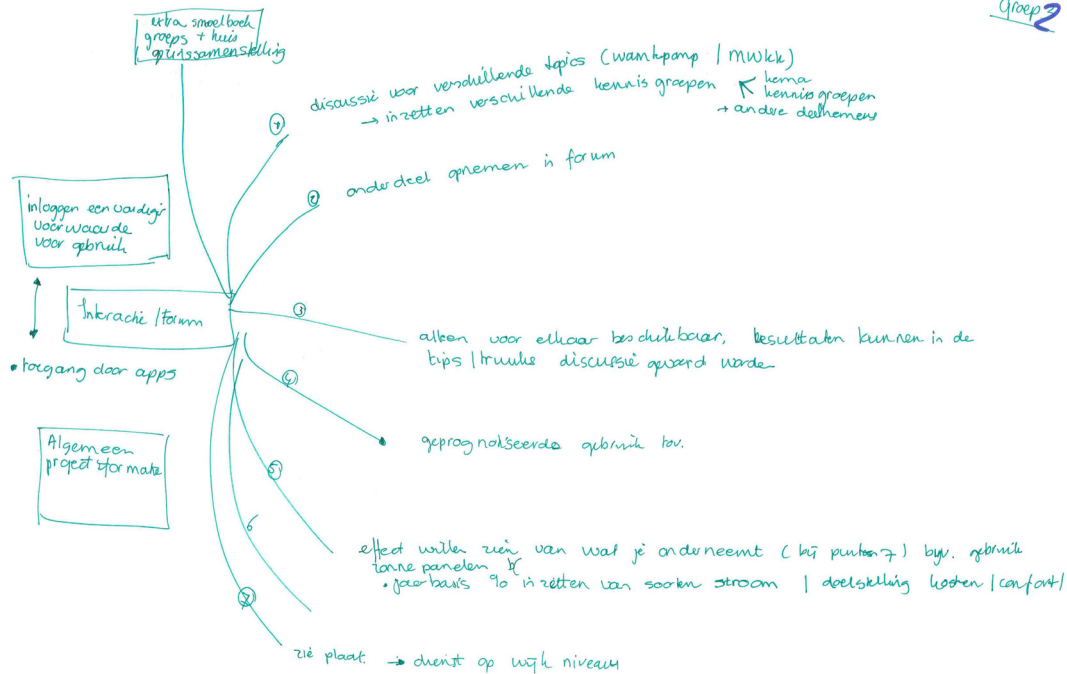 Groep 2
extra smoelboek
groeps + huis
gezinssamenstelling
① discussie voor verschillende topics (warmtepomp / MWKK)
→ inzetten verschillende kennis groepen
kema
kennisgroepen
+ andere deelnemers
② onderdeel opnemen in forum
inloggen eenvoudige
voorwaarde
voor gebruik
Interactie/forum
• toegang door apps
③ alleen voor elkaar beschikbaar, resultaten kunnen in de
tips / trucks discussie gevoerd worden
④ geprognotiseerde gebruik tov.
Algemeen
project informatie
⑤ effect willen zien van wat je onderneemt (bij punten 7) bijv. gebruik
zonnepanelen
• jaarbasis % inzetten van soorten stroom / doelstelling kosten / comfort /
6
⑦ zie plaat. → dienst op wijk niveau